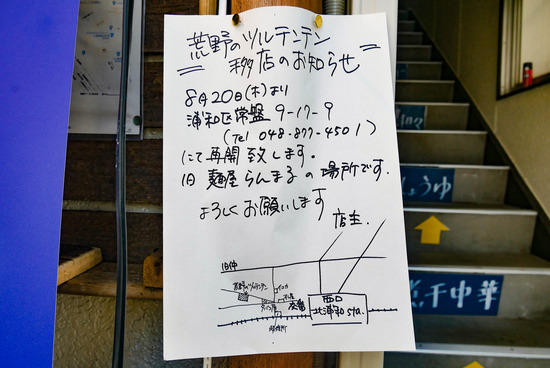 荒野のツルテンテン
移店のお知らせ
8月20日(木)より
浦和区常盤 9-17-9
(Tel 048-877-4501)
にて再開致します。
旧 麺屋 らんまる の 場所です.
よろしくお願いします
店主.
旧中
荒野のツルテンテン
交番
西口
北浦和 sta.
しょうゆ
煮干中華